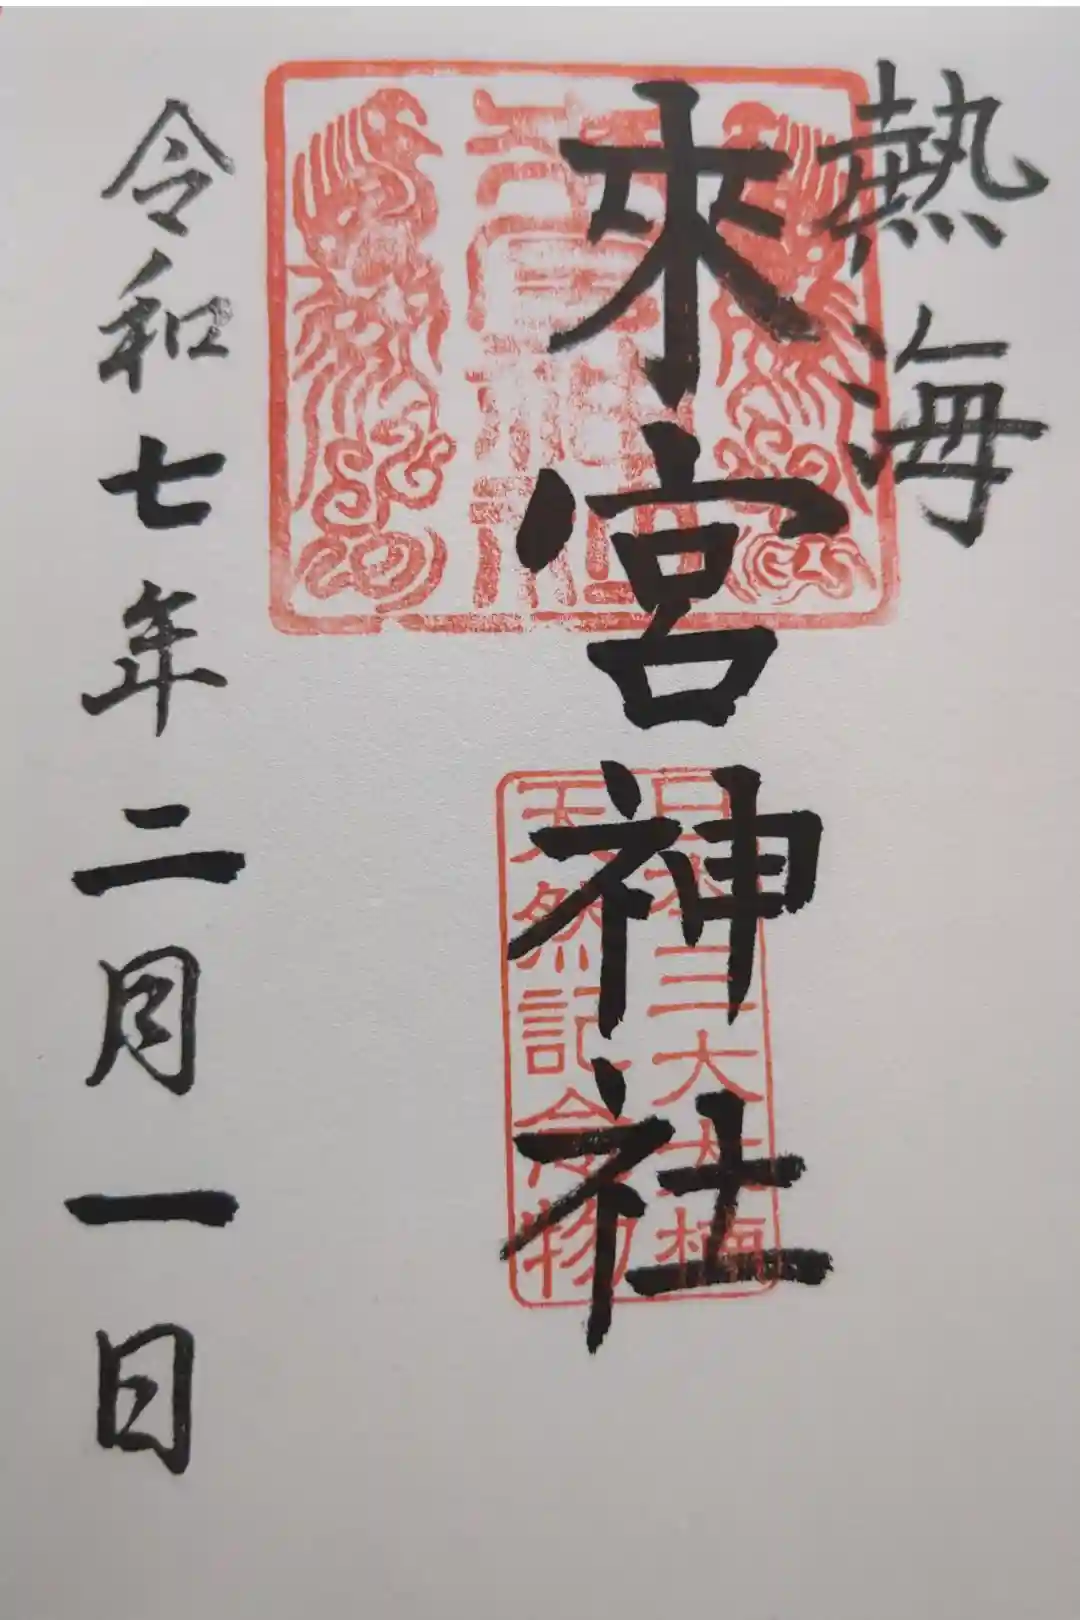 熱海
來宮神社
日本三大大楠
天然記念物
令和七年二月一日